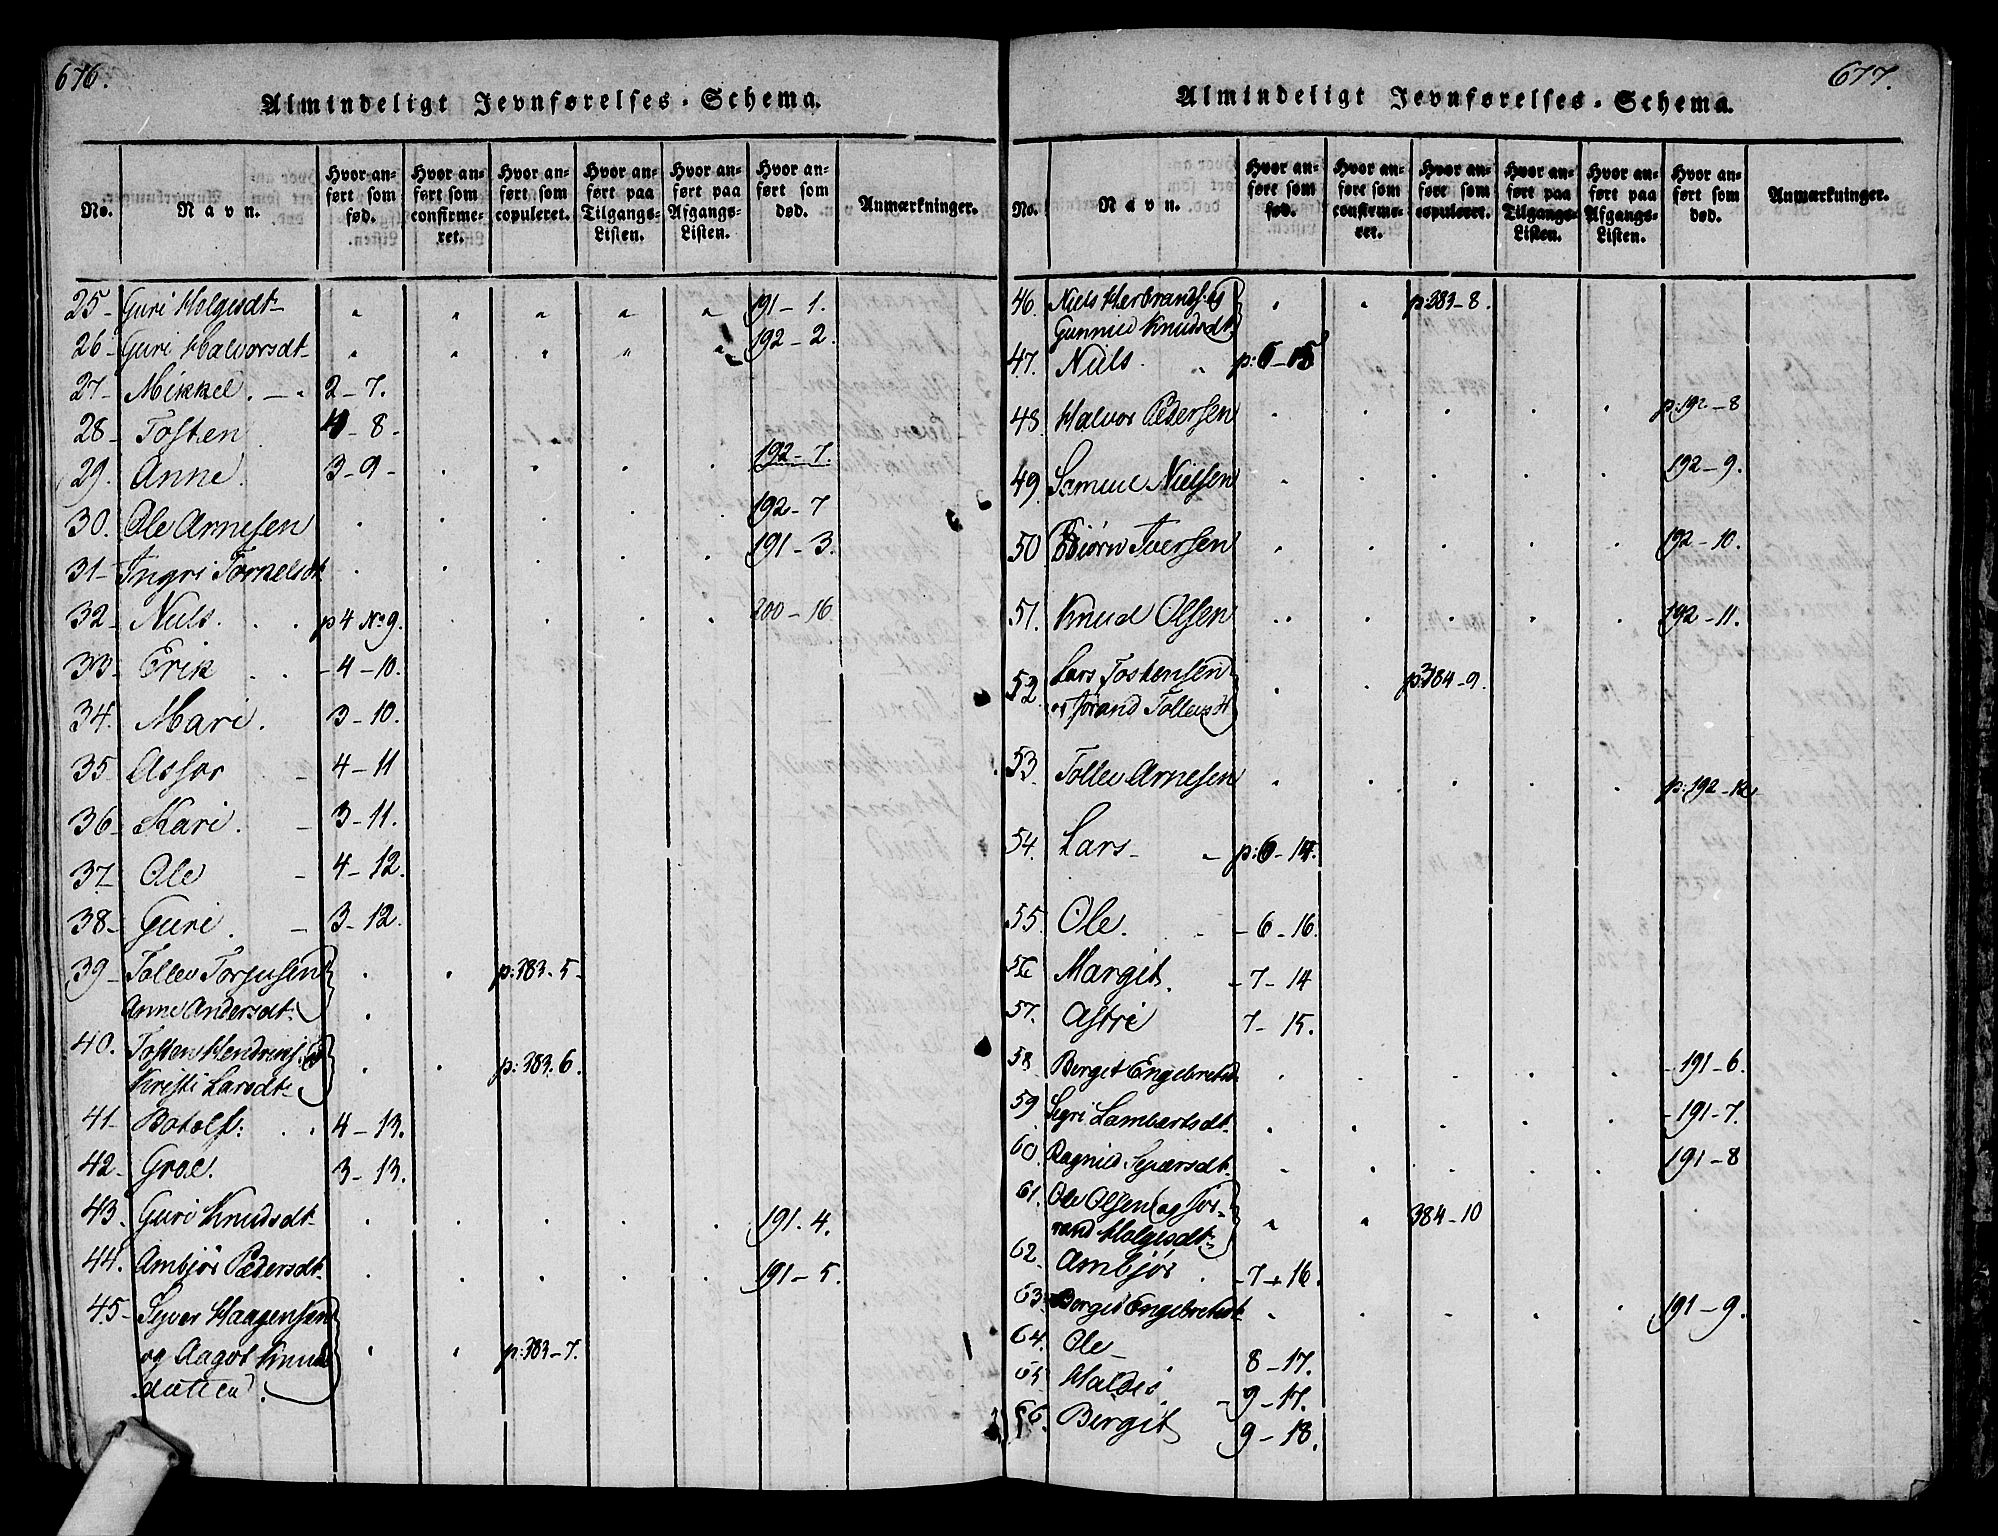 676.
Almindeligt Jevnførelses-Schema.
No. Navn. Hvor anført som fød. Hvor anført som confirmeret. Hvor anført som copuleret. Hvor anført paa Tilgangs-Listen. Hvor anført paa Afgangs-Listen. Hvor anført som død. Anmærkninger.
25- Guri Holgesdt- " " " " " 191-1.
26- Guri Halvorsdt- " " " " " 192-2.
27- Mikkel. 2-7.
28- Tosten -8-
29. Anne. 3-9- 192-7.
30. Ole Arnesen 192-7
31- Ingri Torkelsdt 191-3.
32- Niels. p4 No 9. 200-16
33- Erik -4-10.
34. Mari. 3-10.
35 Assor 4-11
36- Kari. 3-11.
37- Ole 4-12.
38- Guri. 3-12.
39- Tollev Torjusen p:383-5-
Anne Andersdt:
40. Tosten p:383.6.
Kristi Larsdt-
41- Botolf: 4-13.
42- Groe. 3-13.
43. Guri Knudsdt- 191-4.
44. Ambjør Pedersdt. 191-5.
45- Syver Haagensen
og Aagot Knuds p:383-7.
datter.
677.
Almindeligt Jevnførelses-Schema.
No. Navn. Hvor anført som fød. Hvor anført som confirmeret. Hvor anført som copuleret. Hvor anført paa Tilgangs-Listen. Hvor anført paa Afgangs-Listen. Hvor anført som død. Anmærkninger.
46. Niels Herbrands: " " p:383-8.
Gunnild Knudsdt
47. Niels. p:6-15
48. Halvor Pedersen p:192-8
49. Samuel Nielsen 192-9.
50 Biørn Iversen 192-10.
51. Knud Olsen 192-11.
52 Lars Tostensen p:384-9.
og Jørand Tollevsdt
53. Tollev Arnesen p:192-12
54. Lars- p:6-14.
55. Ole. -6-16.
56 Margit. -7-14
57. Astri 7-15.
58. Bergit Engebretsd. -191-6.
59 Sigri Lambertsdt. -191-7.
60. Ragnild Syversdt. 191-8
61. Ole Olsen og Jør- " " 384-10
rand Holgesdt-
62. Ambjør -7-16.
63 Bergit Engebretsdt 191-9.
64. Ole- 8-17.
65 Haldis -9-17.
66. Bergit 9-18.